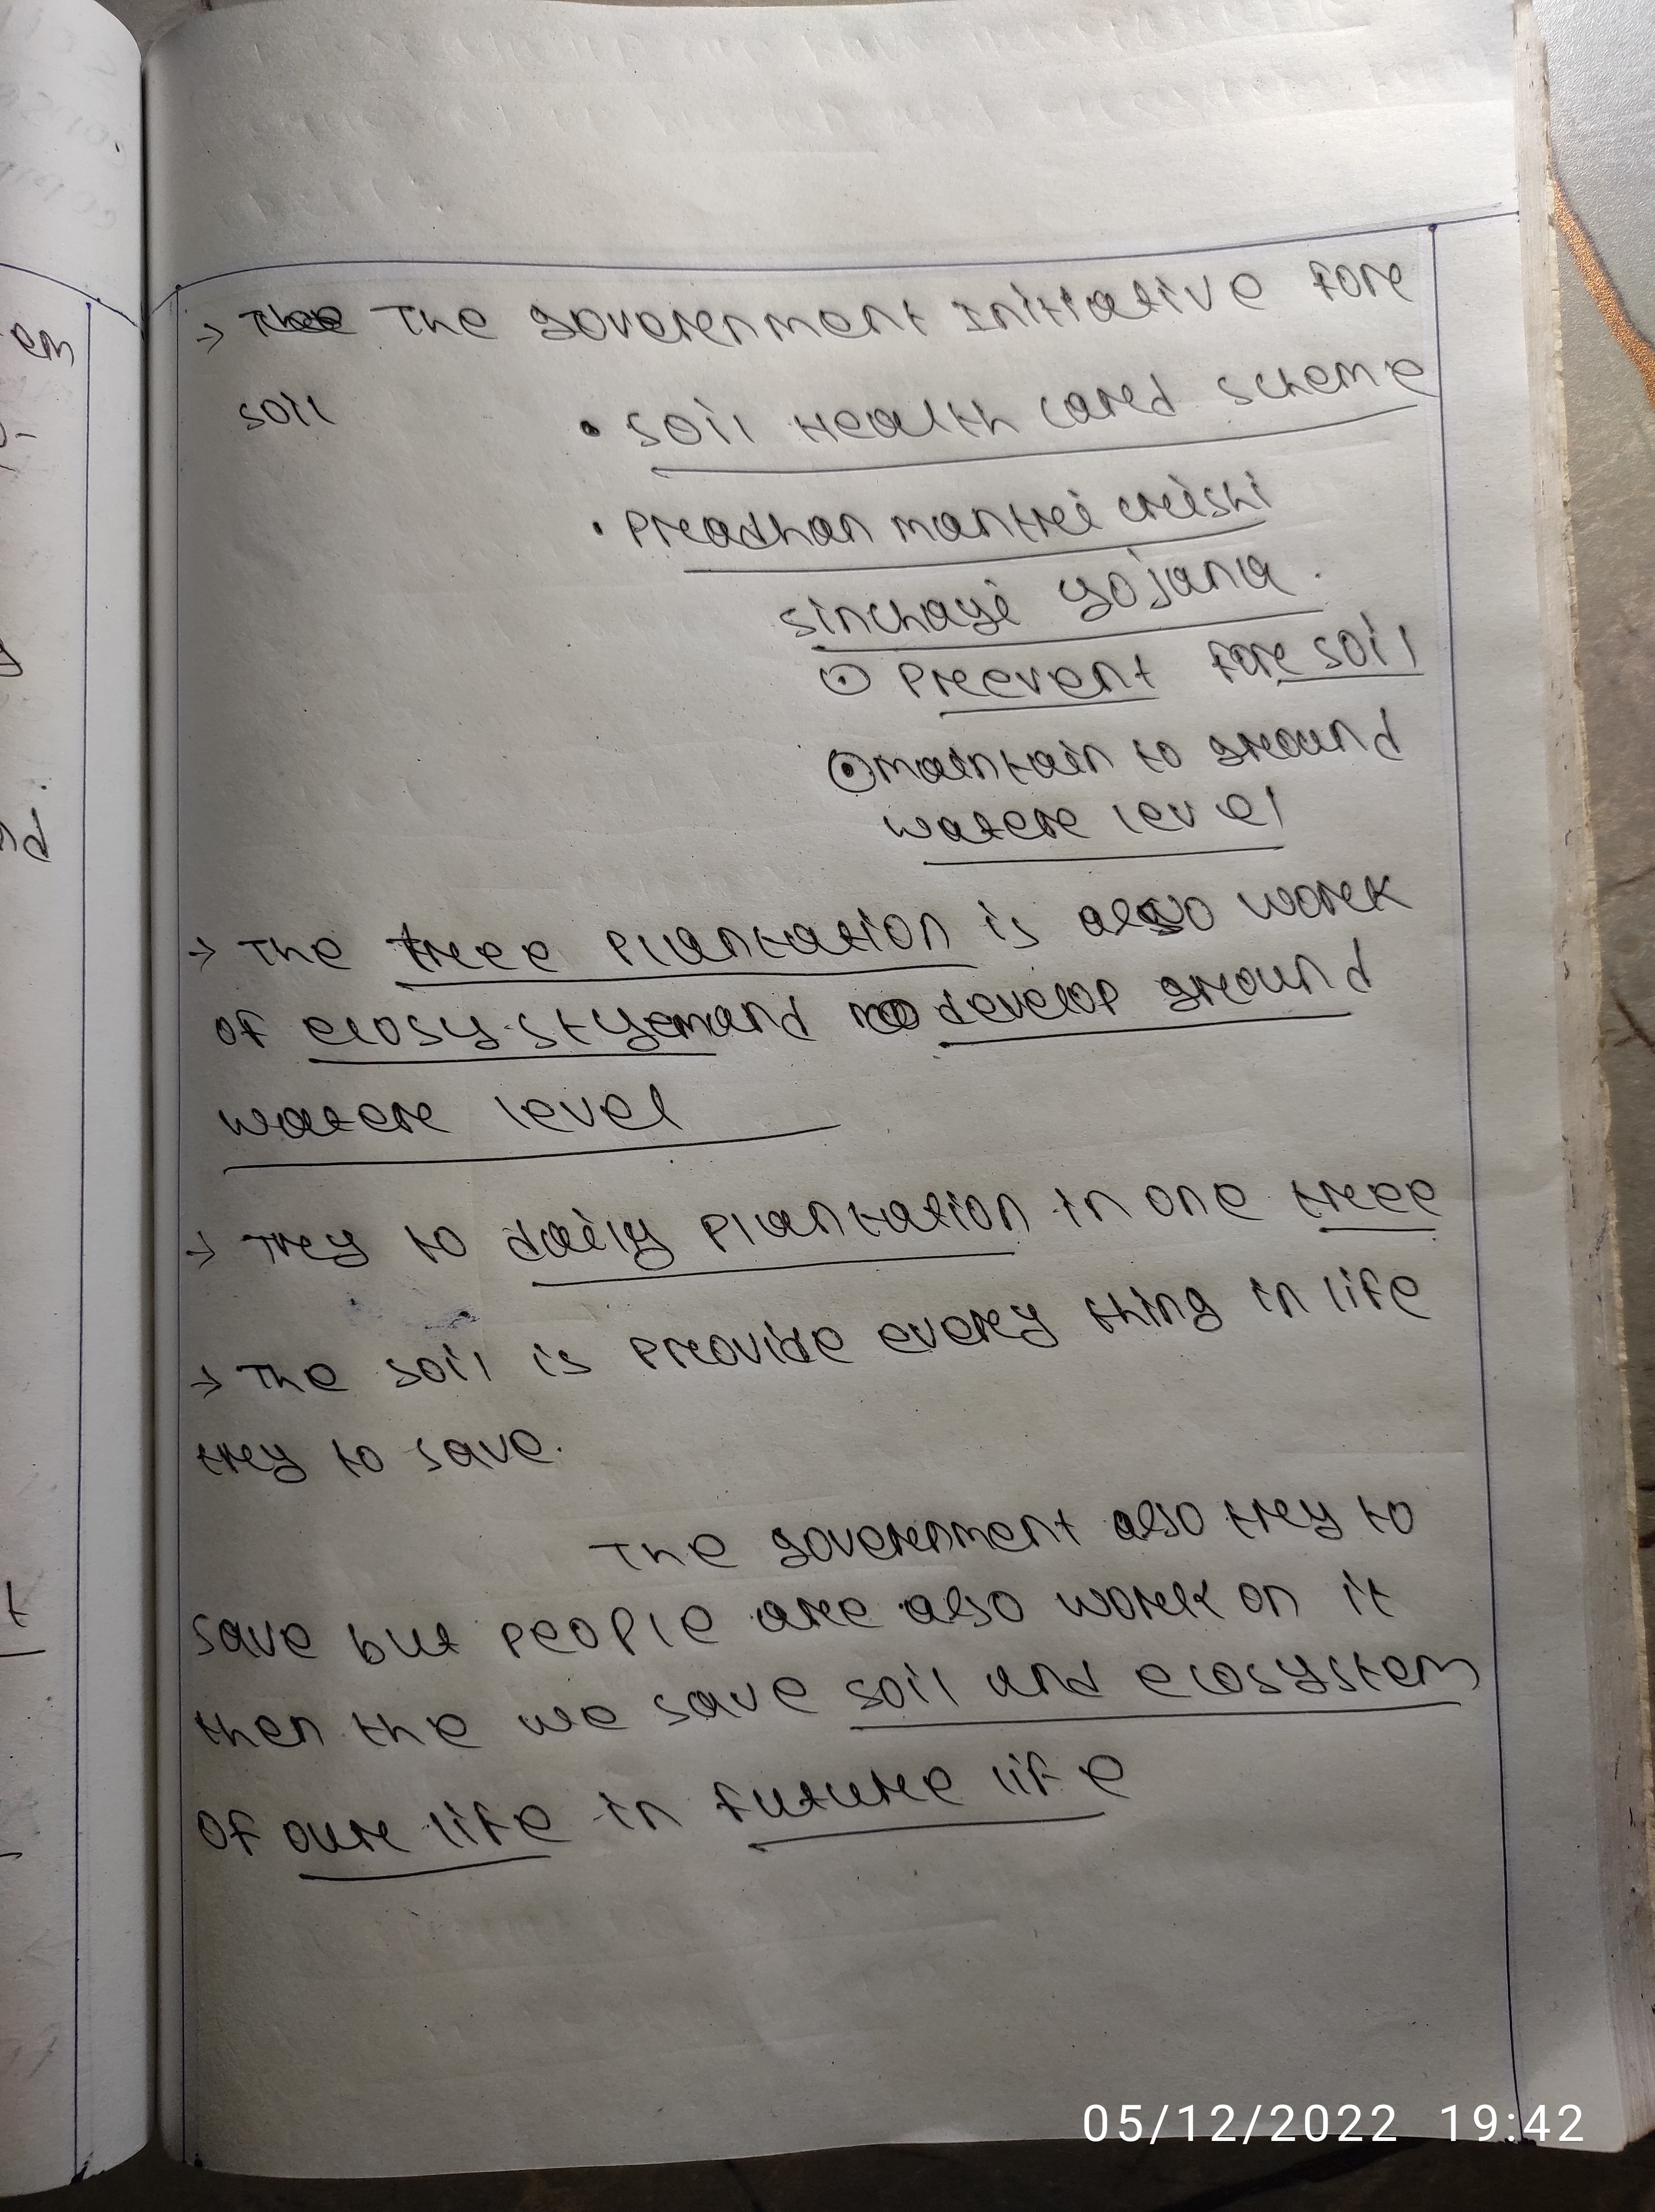 em
nd
t
→ The The government Initiative for
soil
• soil Health card scheme
• Pradhan mantri crishi
sinchayi yojana.
⊙ Prevent for soil
⊙ maintain to ground
water level
→ The tree Plantation is also work
of ecosystyem and develop ground
water level
→ Try to daily Plantation in one tree
→ The soil is Provide every thing in life
try to save.
The government also try to
save but people are also work on it
then the we save soil and ecosystem
of our life in future life
05/12/2022 19:42